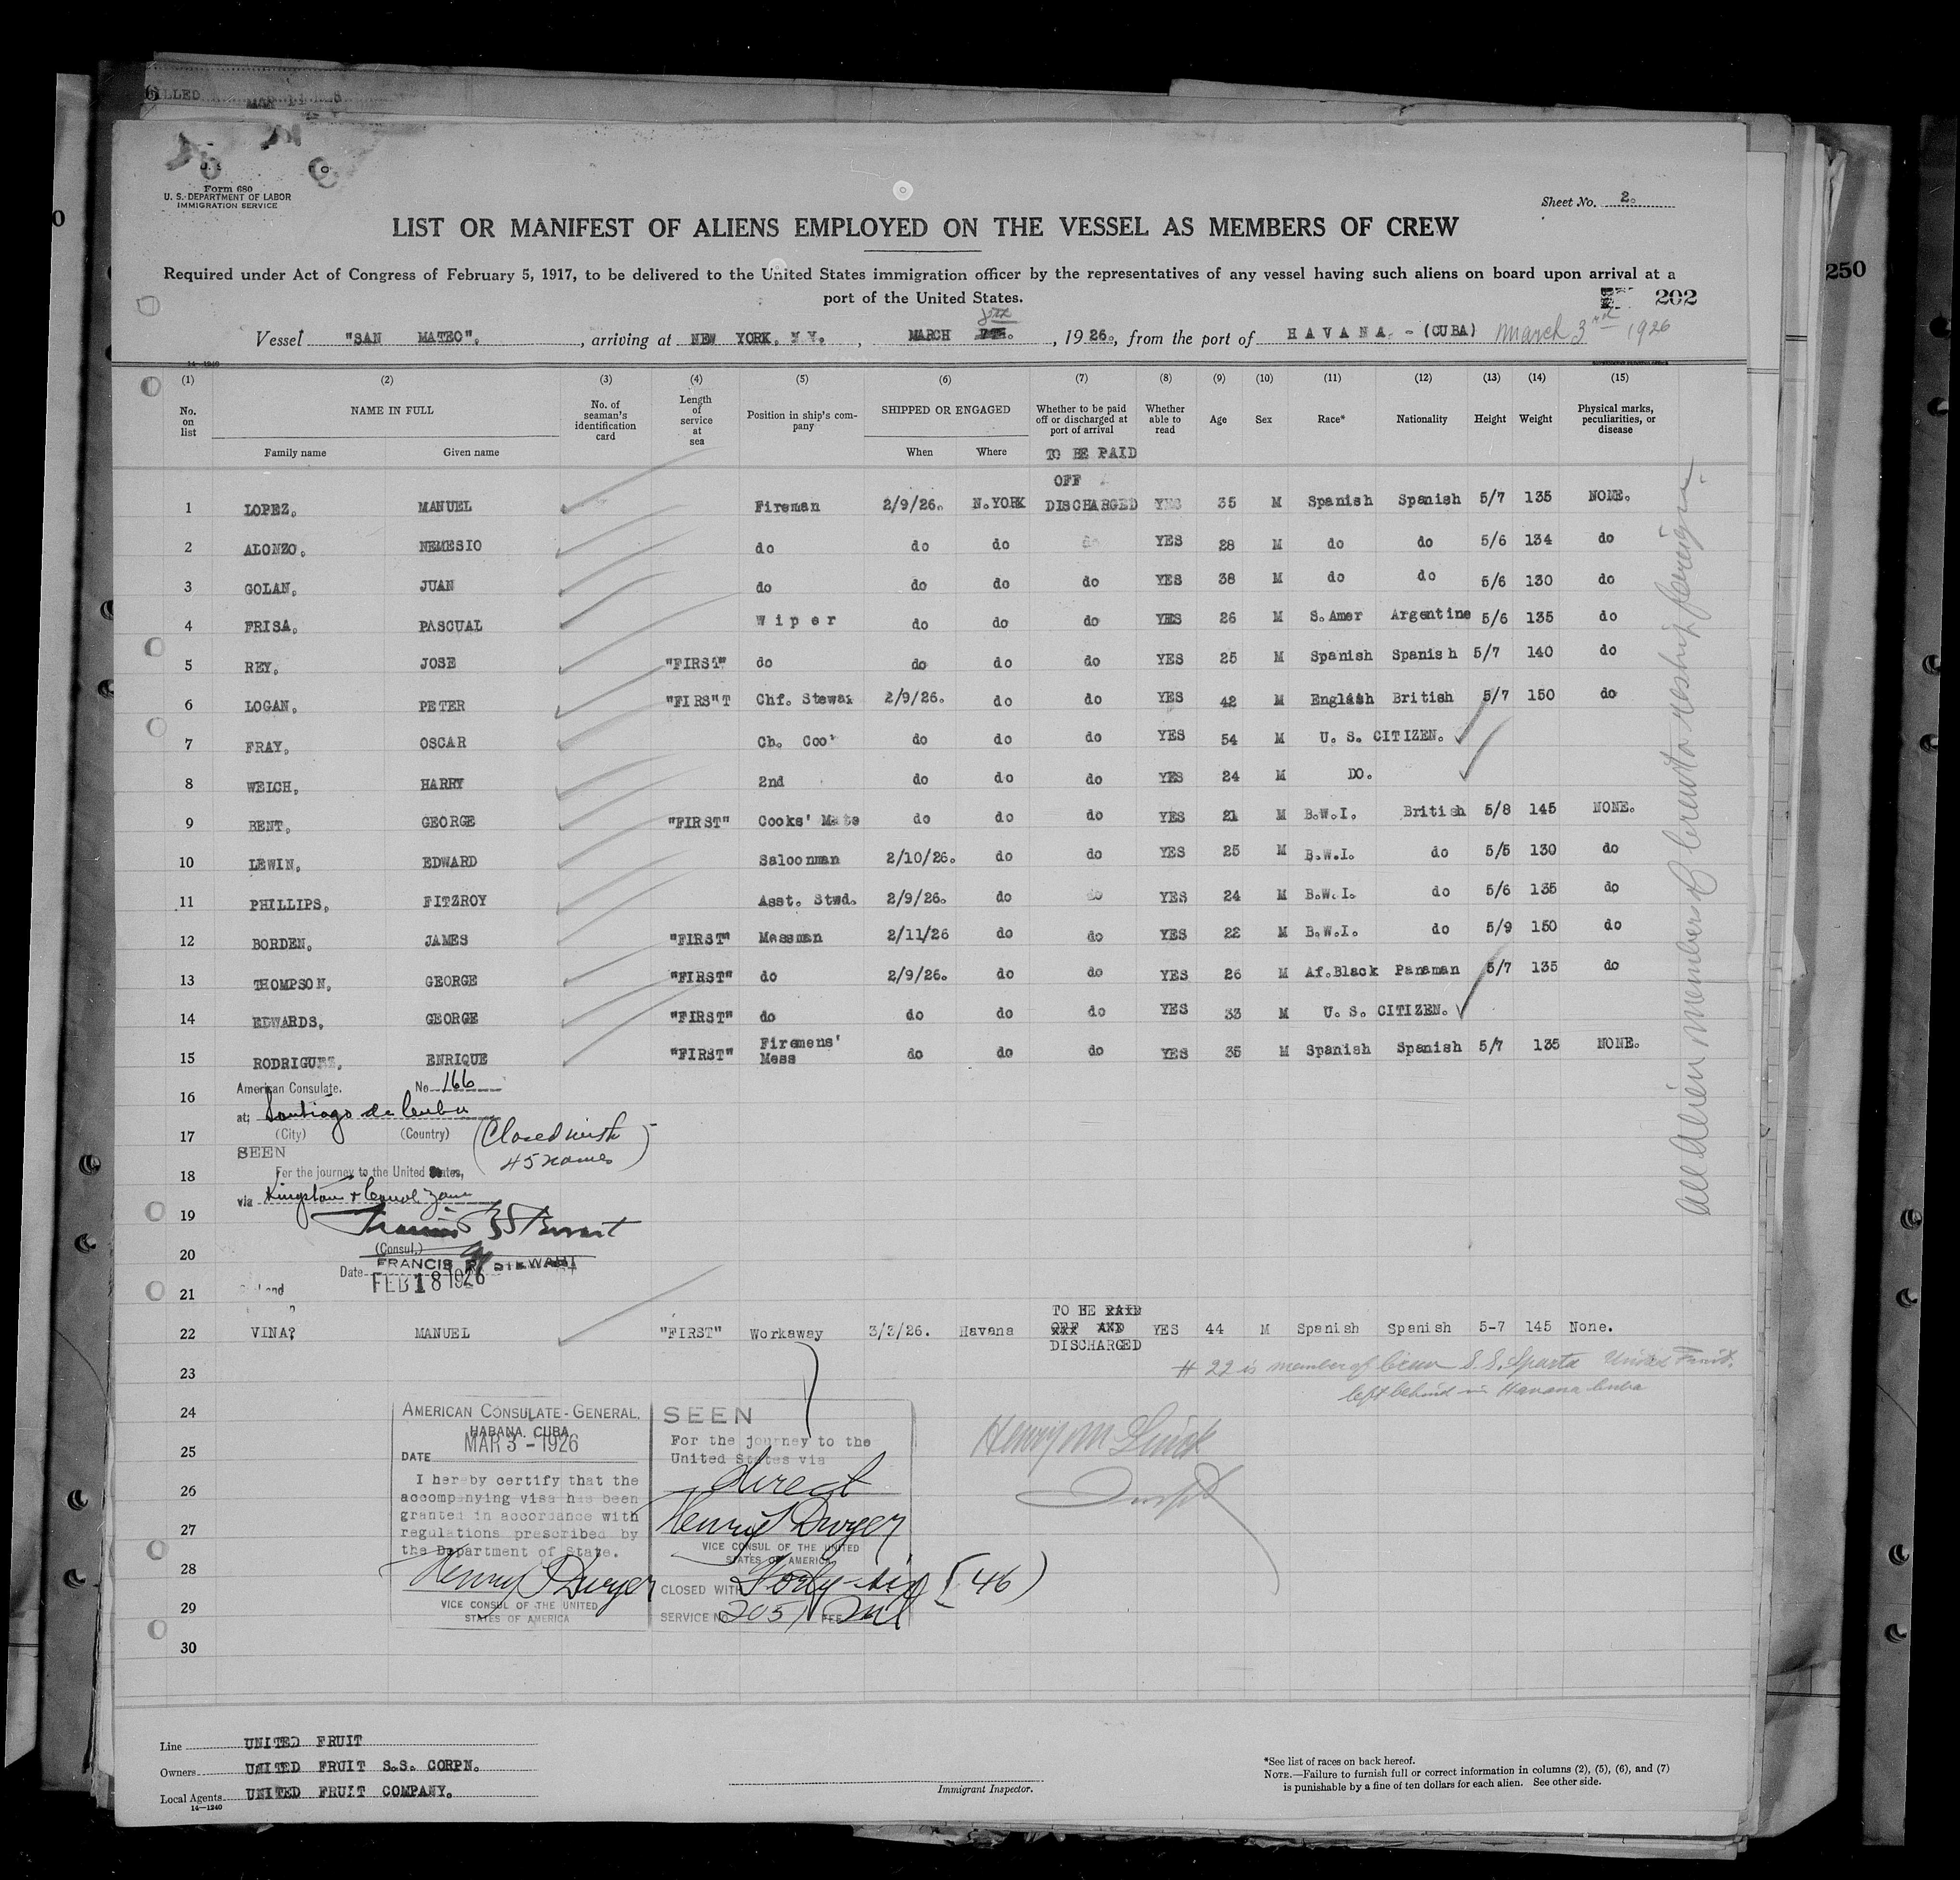 Form 680
U. S. DEPARTMENT OF LABOR
IMMIGRATION SERVICE
Sheet No. 2.
LIST OR MANIFEST OF ALIENS EMPLOYED ON THE VESSEL AS MEMBERS OF CREW
Required under Act of Congress of February 5, 1917, to be delivered to the United States immigration officer by the representatives of any vessel having such aliens on board upon arrival at a
port of the United States.
202
250
Vessel "SAN MATEO". , arriving at NEW YORK. N.Y. , MARCH , 1926., from the port of HAVANA. - (CUBA) March 3rd 1926
14-1240
(1) (2) (3) (4) (5) (6) (7) (8) (9) (10) (11) (12) (13) (14) (15)
No. on list NAME IN FULL No. of seaman's identification card Length of service at sea Position in ship's company SHIPPED OR ENGAGED Whether to be paid off or discharged at port of arrival Whether able to read Age Sex Race* Nationality Height Weight Physical marks, peculiarities, or disease
Family name Given name When Where
TO BE PAID
OFF
1 LOPEZ. MANUEL Fireman 2/9/26. N.YORK DISCHARGED YES 35 M Spanish Spanish 5/7 135 NONE.
2 ALONZO. NEMESIO do do do do YES 28 M do do 5/6 134 do
3 GOLAN. JUAN do do do do YES 38 M do do 5/6 130 do
4 FRISA. PASCUAL Wiper do do do YES 26 M S.Amer Argentine 5/6 135 do
5 REY. JOSE "FIRST" do do do do YES 25 M Spanish Spanish 5/7 140 do
6 LOGAN. PETER "FIRS"T Chf. Stewar 2/9/26. do do YES 42 M English British 5/7 150 do
7 FRAY. OSCAR Ch. Coo do do do YES 54 M U. S. CITIZEN.
8 WEICH. HARRY 2nd do do do YES 24 M DO.
9 BENT. GEORGE "FIRST" Cooks' Mate do do do YES 21 M B.W.I. British 5/8 145 NONE.
10 LEWIN. EDWARD Saloonman 2/10/26. do do YES 25 M B.W.I. do 5/5 130 do
11 PHILLIPS. FITZROY Asst. Stwd. 2/9/26. do do YES 24 M B.W.I. do 5/6 135 do
12 BORDEN. JAMES "FIRST" Messman 2/11/26 do do YES 22 M B.W.I. do 5/9 150 do
13 THOMPSON. GEORGE "FIRST" do 2/9/26. do do YES 26 M Af.Black Panaman 5/7 135 do
14 EDWARDS. GEORGE "FIRST" do do do do YES 33 M U. S. CITIZEN.
Firemens'
15 RODRIGUEZ. ENRIQUE "FIRST" Mess do do do YES 35 M Spanish Spanish 5/7 135 NONE.
American Consulate. No 166
16
at; Santiago de Cuba
17 (City) (Country) (Closed with
SEEN 45 names)
18 For the journey to the United States,
via Kingston & Canal Zone
19
(Consul.)
20 FRANCIS R. STEWART
Date FEB 18 1926
21
TO BE PAID
22 VINA? MANUEL "FIRST" Workaway 3/3/26. Havana OFF AND YES 44 M Spanish Spanish 5-7 145 None.
DISCHARGED
23 # 22 is member of Crew S.S. Sparta United Fruit.
left behind in Havana Cuba
24 AMERICAN CONSULATE-GENERAL, SEEN
HABANA. CUBA.
25 DATE MAR 3 - 1926 For the journey to the
United States via
I hereby certify that the direct
26 accompanying visa has been
granted in accordance with Henry T Dwyer
27 regulations prescribed by VICE CONSUL OF THE UNITED
the Department of State. STATES OF AMERICA
28 Henry T Dwyer CLOSED WITH Forty-six (46)
29 VICE CONSUL OF THE UNITED SERVICE No. 2051 FEE Nil
STATES OF AMERICA
30
All Alien Members of Crew to reship foreign.
Line UNITED FRUIT
Owners UNITED FRUIT S.S. CORPN.
Local Agents UNITED FRUIT COMPANY.
14-1240
Immigrant Inspector.
*See list of races on back hereof.
NOTE.—Failure to furnish full or correct information in columns (2), (5), (6), and (7)
is punishable by a fine of ten dollars for each alien. See other side.